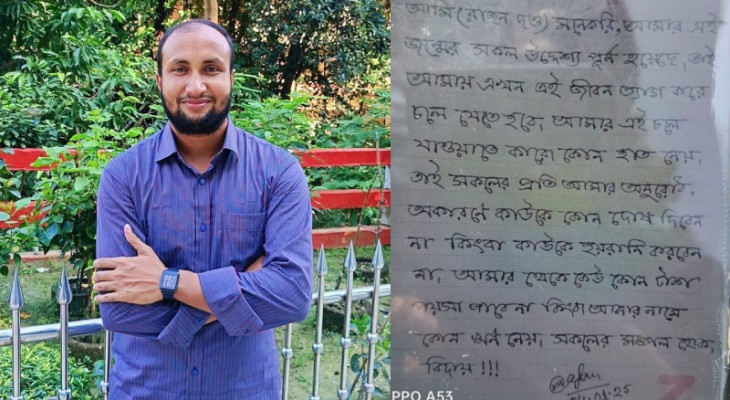 আমি (রোহন দত্ত) মনেকরি, আমার এই
জন্মের সকল উদ্দেশ্য পূর্ণ হয়েছে, তাই
আমায় এখন এই জীবন ত্যাগ করে
চলে যেতে হবে, আমার এই চলে
যাওয়াতে কারো কোন হাত নেয়,
তাই সকলের প্রতি আমার অনুরোধ,
অকারণে কাউকে কোন দোষ দিবেন
না কিংবা কাউকে হয়রানি করবেন
না, আমার থেকে কেউ কোন টাকা
পয়সা পাবে না কিংবা আমার নামে
কোন নেয়, সকলের মঙ্গল হোক,
বিদায় !!!
PPO A53